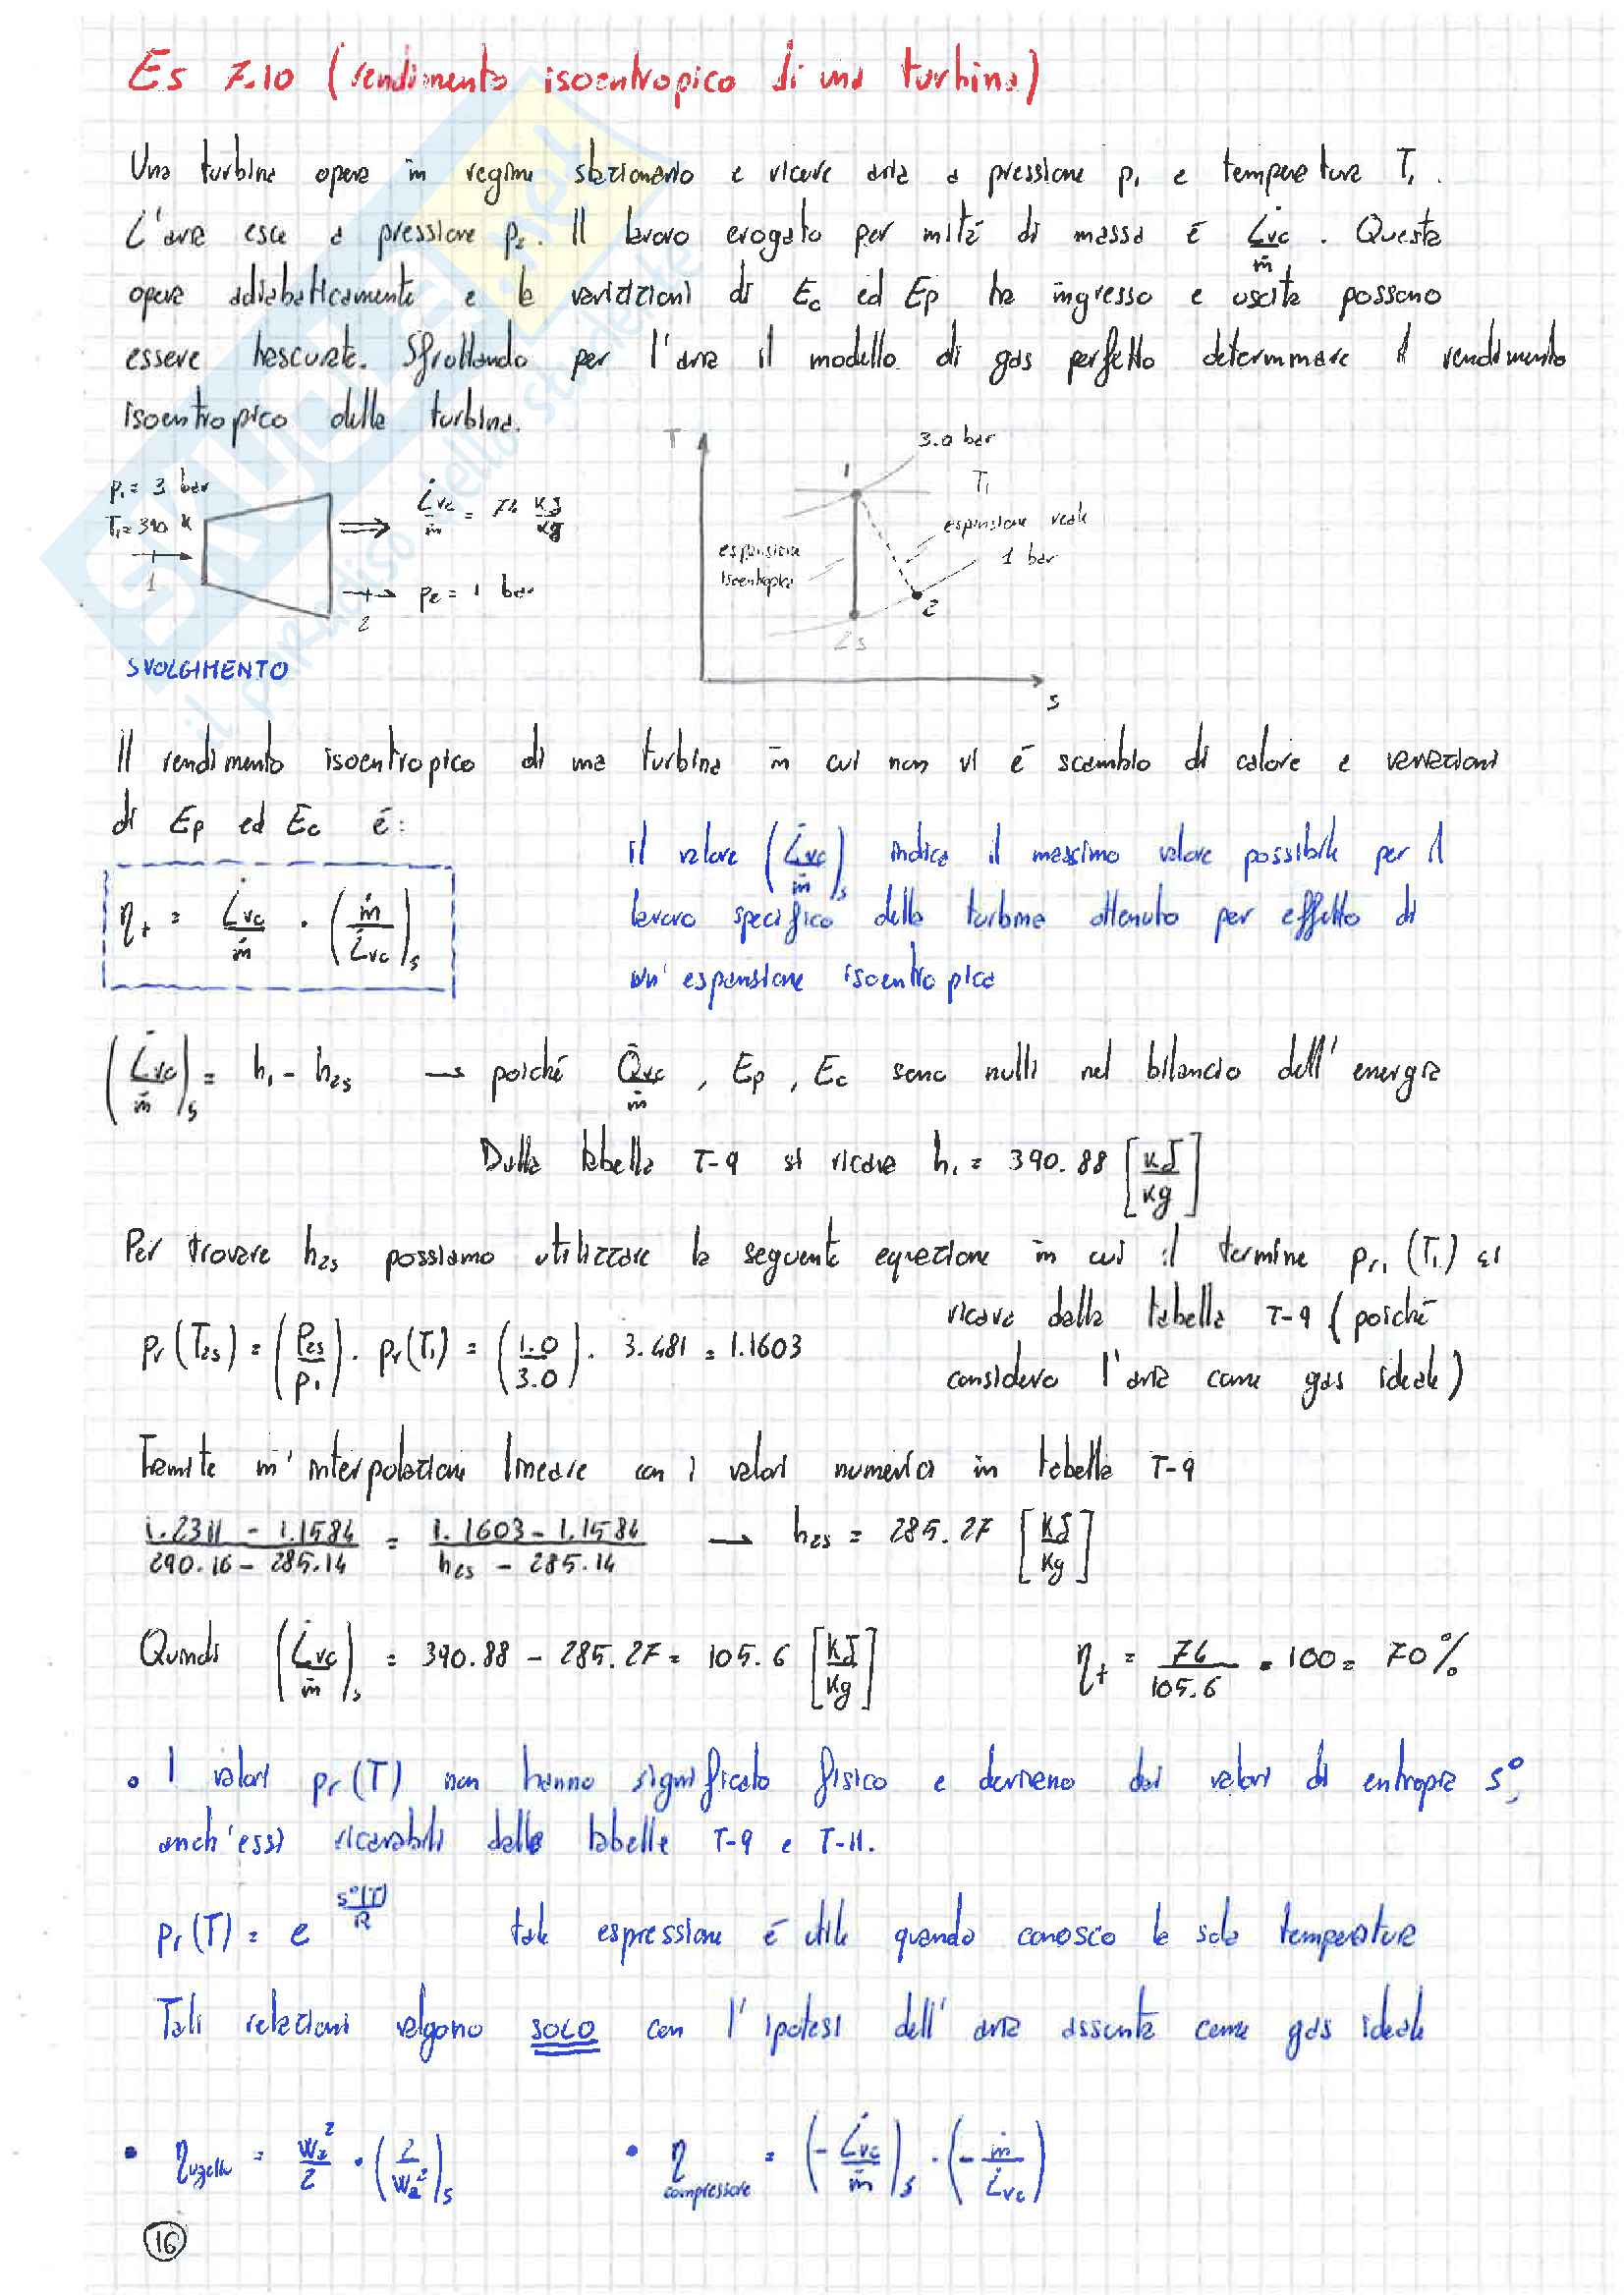 Es 7.10 (rendimento isoentropico di una turbina)
Una turbina opera in regime stazionario e riceve aria a pressione p₁ e temperatura T₁.
L'aria esce a pressione p₂. Il lavoro erogato per unità di massa è L̇vc/ṁ. Questa
opera adiabaticamente e le variazioni di Ec ed Ep tra ingresso e uscita possono
essere trascurate. Sfruttando per l'aria il modello di gas perfetto determinare il rendimento
isoentropico della turbina.
p₁ = 3 bar
T₁ = 390 K
1
L̇vc/ṁ = 74 kJ/kg
p₂ = 1 bar
2
T
3.0 bar
1
T₁
espansione reale
espansione
isoentropica
1 bar
2
2s
s
SVOLGIMENTO
Il rendimento isoentropico di una turbina in cui non vi è scambio di calore e variazioni
di Ep ed Ec è:
ηt = L̇vc/ṁ · (ṁ/L̇vc)s
il valore (L̇vc/ṁ)s indica il massimo valore possibile per il
lavoro specifico della turbina ottenuto per effetto di
un'espansione isoentropica
(L̇vc/ṁ)s = h₁ - h₂s → poiché Q̇vc/ṁ, Ep, Ec sono nulli nel bilancio dell'energia
Dalla tabella T-9 si ricava h₁ = 390.88 [kJ/kg]
Per trovare h₂s possiamo utilizzare la seguente equazione in cui il termine pr₁(T₁) si
ricava dalla tabella T-9 (poiché
considero l'aria come gas ideale)
pr(T₂s) = (p₂s/p₁) · pr(T₁) = (1.0/3.0) · 3.481 = 1.1603
Tramite un'interpolazione lineare con i valori numerici in tabella T-9
(1.2311 - 1.1584)/(290.16 - 285.14) = (1.1603 - 1.1584)/(h₂s - 285.14) → h₂s = 285.27 [kJ/kg]
Quindi (L̇vc/ṁ)s = 390.88 - 285.27 = 105.6 [kJ/kg] ηt = 74/105.6 · 100 = 70%
• I valori pr(T) non hanno significato fisico e derivano dai valori di entropia s°,
anch'essi ricavabili dalle tabelle T-9 e T-11.
pr(T) = e^(s°(T)/R) tale espressione è utile quando conosco la sola temperatura
Tali relazioni valgono SOLO con l'ipotesi dell'aria assunta come gas ideale
• ηugello = w₂²/2 · (2/w₂²)s • ηcompressore = (-L̇vc/ṁ)s · (-ṁ/L̇vc)
16